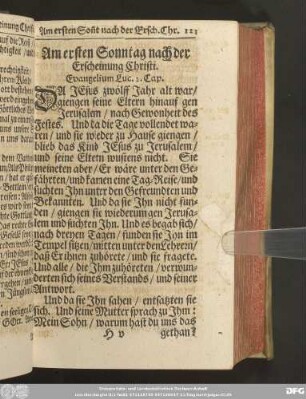 Am ersten Soñt nach der Ersch. Chr. 121
Am ersten Sonntag nach der
Erscheinung Christi.
Evangelium Luc. 2. Cap.
DA JEsus zwölff Jahr alt war/
giengen seine Eltern hinauf gen
Jerusalem / nach Gewonheit des
Festes. Und da die Tage vollendet wa-
ren / und sie wieder zu Hause giengen /
blieb das Kind JEsus zu Jerusalem/
und seine Eltern wustens nicht. Sie
meineten aber / Er wäre unter den Ge-
fährten/und kamen eine Tag-Reise/und
suchten Jhn untr den Gefreundten und
Bekannten. Und da sie Jhn nicht fun-
den / giengen sie wiederum gen Jerusa-
lem und suchten Jhn. Und es begab sich/
nach dreyen Tagen/ funden sie Jhn im
Tempel sitzen/mitten unter den Lehrern/
daß Er ihnen zuhörete / und sie fragete.
Und alle / die Jhm zuhöreten / verwun-
derten sich seines Verstands / und seiner
Antwort.
Und da sie Jhn sahen / entsatzten sie
sich. Und seine Mutter sprach zu Jhm:
Mein Sohn / warum hast du uns das
H v gethan?